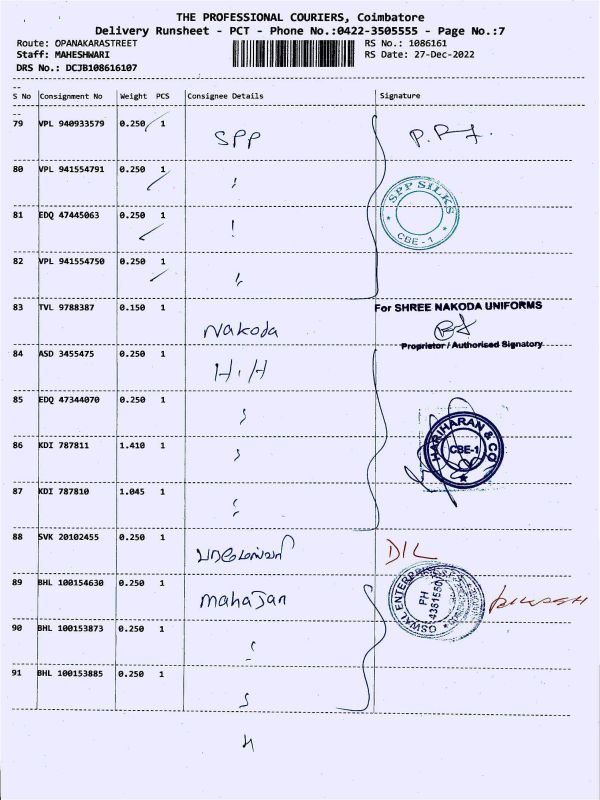 THE PROFESSIONAL COURIERS, Coimbatore
Delivery Runsheet - PCT - Phone No.:0422-3505555 - Page No.:7
Route: OPANAKARASTREET RS No.: 1086161
Staff: MAHESHWARI RS Date: 27-Dec-2022
DRS No.: DCJB108616107
S No Consignment No Weight PCS Consignee Details Signature
79 VPL 940933579 0.250 1
SPP
80 VPL 941554791 0.250 1
SPP SILKS
CBE - 1
81 EDQ 47445063 0.250 1
82 VPL 941554750 0.250 1
83 TVL 9788387 0.150 1 For SHREE NAKODA UNIFORMS
Nakoda
Proprietor / Authorised Signatory
84 ASD 3455475 0.250 1
H.H
85 EDQ 47344070 0.250 1
HARIHARAN & CO
CBE-1
86 KDI 787811 1.410 1
87 KDI 787810 1.045 1
88 SVK 20102455 0.250 1
DIL
89 BHL 100154630 0.250 1
Mahajan
OSWAL ENTERPRISES
PH
90 BHL 100153873 0.250 1
91 BHL 100153885 0.250 1